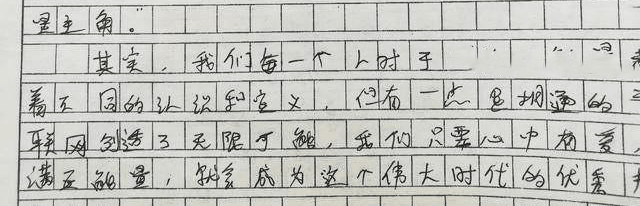 是主角。”
其实，我们每一个人对于
着不同的认识和定义，但有一点是相通的
联网创造了无限可能，我们只要心中有爱，
满正能量，就会成为这个伟大时代的优秀